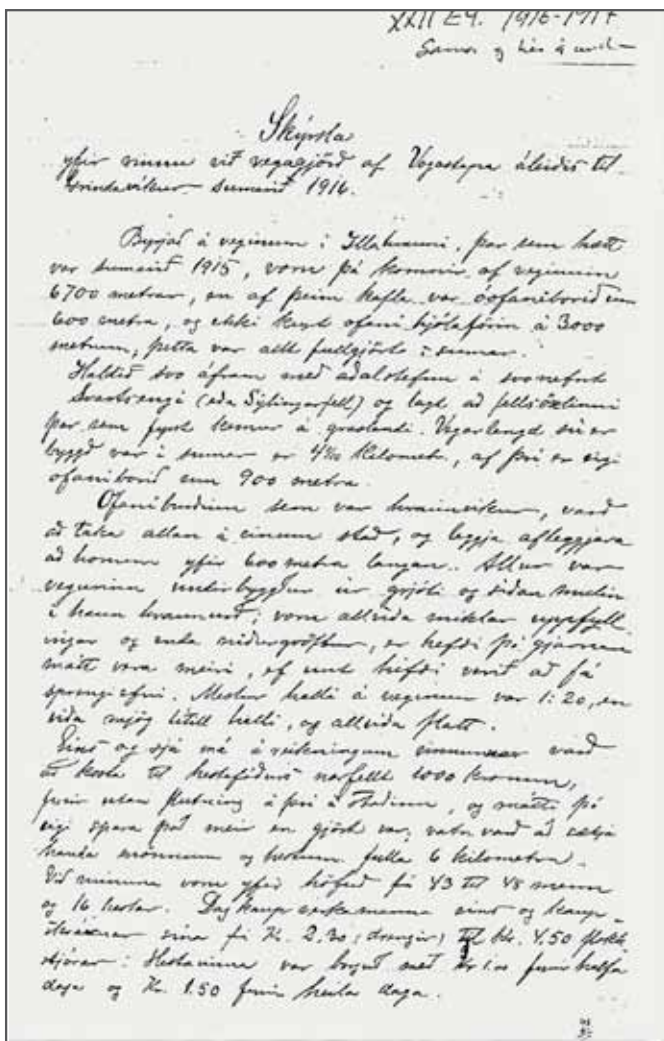 XXII E4. 1916-1917
Samor og hés á und
Skýrsla
yfir vinnu við vegagjörð af Vogastapa áleiðis til
Grindavíkur sumarið 1916.
Byrjað á veginum í Illahrauni, þar sem hætt
var sumarið 1915, voru þá komnir af veginum
6700 metrar, en af þeim kafla var óofaníborið um
600 metra, og ekki keyrt ofaní hjólaförin á 3000
metrum, þetta var allt fullgjört í sumar.
Haldið svo áfram með aðalstefnu á svonefnt
Svartsengi (eða Sýlingarfell) og lagt að fellsöxlinni
þar sem fyrst kemur á graslendi. Vegarlengd sú er
byggð var í sumar er 4 Kilometr., af því er eigi
ofaníborið um 900 metra.
Ofaníburðinn sem var hraunleikur, varð
að taka allan á einum stað, og leggja afleggjara
að honum yfir 600 metra langan. Allur var
vegurinn undirbyggður úr grjóti og síðan mulin
í hann hraunurð; voru allvíða miklar uppfyll
ingar og enda niðurgröftur, er hefði þó gjarnan
mátt vera meiri, ef unt hefði verið að fá
sprengiefni. Mestur halli á veginum var 1:20, en
víða mjög lítill halli, og allvíða flatt.
Eins og sjá má á reikningum vinnunnar varð
að kosta til hestafóðurs nærfellt 1000 krónum,
fyrir utan flutning á því á staðinn, og mátti þó
eigi spara það meir en gjört var; vatn varð að sækja
handa mönnum og hestum fulla 6 kilometra.
Við vinnuna voru yfir höfuð frá 43 til 48 menn
og 16 hestar. Dagkaup verkamanna eins og kaup-
skrárnar sína frá Kr. 2,30 (drengir) til Kr. 4.50 flokk
stjórar: Hestavinna var borguð með Kr 1.00 fyrir hálfa
daga og Kr. 1.50 fyrir heila daga.